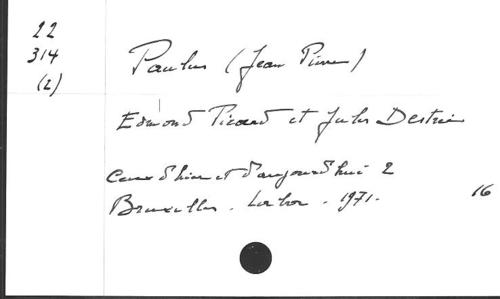 22
314
(2)
Paulus (Jean Pierre)
Edmond Picard et Jules Destrée
Ceux d'hier et d'aujourd'hui 2
Bruxelles. Labor. 1971.
16